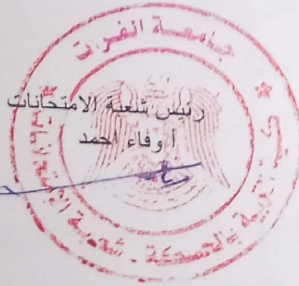 جامعة الفرات
رئيس شعبة الامتحانات
أ وفاء احمد
كلية التربية بالحسكة - شعبة